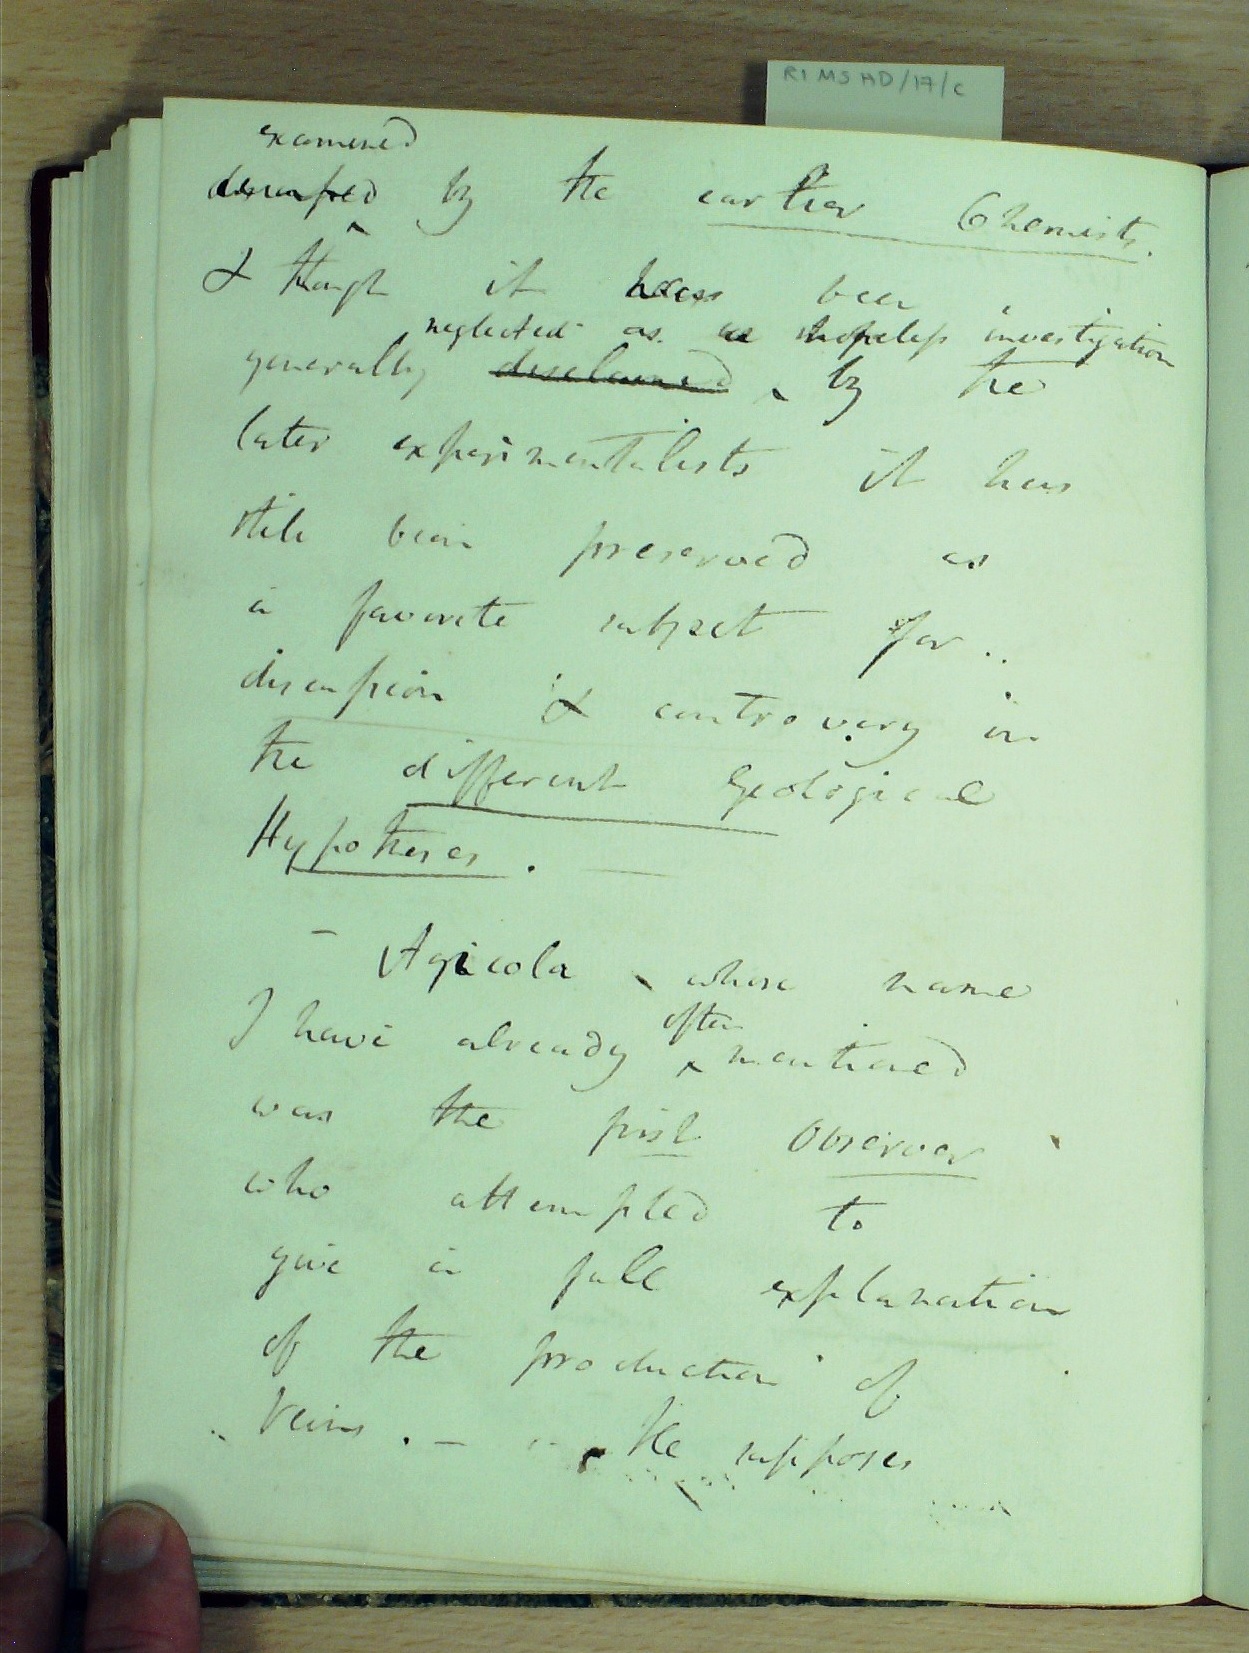 RI MS HD/17/C
examined
discussed by the earlier Chemists.
& though it has been
neglected as a hopeless investigation
generally disclaimed by the
later experimentalists it has
still been preserved as
a favorite subject for
discussion & controvery in
the different Geological
Hypotheses. —
— Agricola, whose name
often
I have already mentioned
was the first Observer
who attempted to
give a full explanation
of the production of
Veins. — He supposes